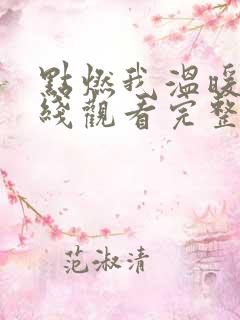 點燃我溫暖
綫觀看完整
范淑清